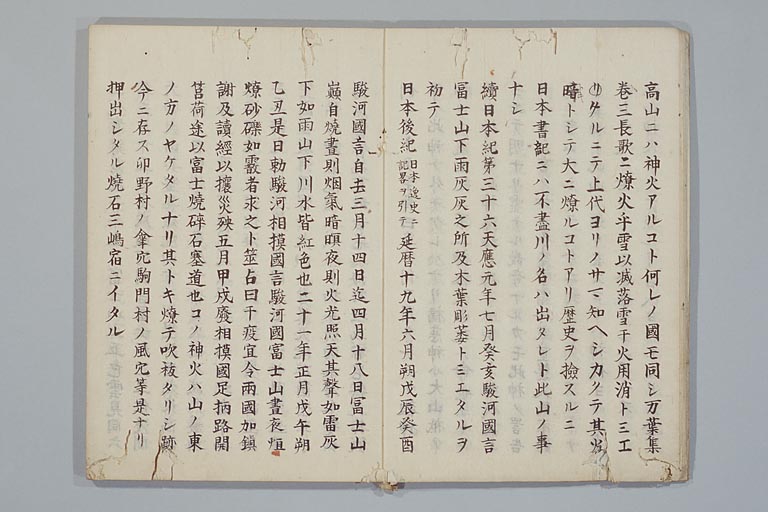 高山ニハ神火アルコト何レノ國モ同シ万葉集
卷三長歌ニ燎火乎雪以滅落雪乎火用消トミエ
タルニテ上代ヨリノサマ知ヘシカクテ其
時トシテ大ニ燎ルコトアリ歴史ヲ撿スルニ
日本書記ニハ不盡川ノ名ハ出タレト此山ノ事
ナシ
續日本紀第三十六天應元年七月癸亥駿河國言
冨士山下雨灰灰之所及木葉彫萎トミエタルヲ
初テ
日本後紀日本逸史ニ記畧ヲ引テ延暦十九年六月朔戊辰癸酉
駿河國言自去三月十四日迄四月十八日冨士山
巓自燒晝則烟氣暗瞑夜則火光照天其聲如雷灰
下如雨山下川水皆紅色也二十一年正月戊午朔
乙丑是日勅駿河相摸國言駿河國富士山晝夜烜
燎砂礫如霰者求之卜筮占曰于疫宜令兩國加鎮
謝及讀經以攘災殃五月甲戌廢相摸國足柄路開
筥荷途以富士燒碎石塞道也コノ神火ハ山ノ東
ノ方ノヤケタルナリ其トキ燎テ吹抜タリシ跡
今ニ存ス卯野村ノ穴駒門村ノ風穴等是ナリ
押出シタル燒石三嶋宿ニイタル